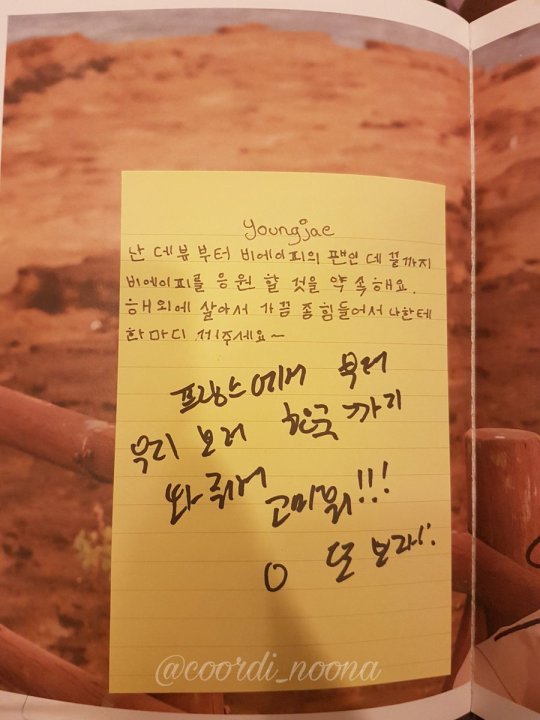 youngjae
난 데뷰부터 비에이피의 팬인데 끝까지
비에이피를 응원 할 것을 약속해요.
해외에 살아서 가끔 좀 힘들어서 나한테
한마디 써주세요~
프랑스에서 부터
우리 보러 한국까지
와줘서
고마워!!!
또 보자!
@coordi_noona